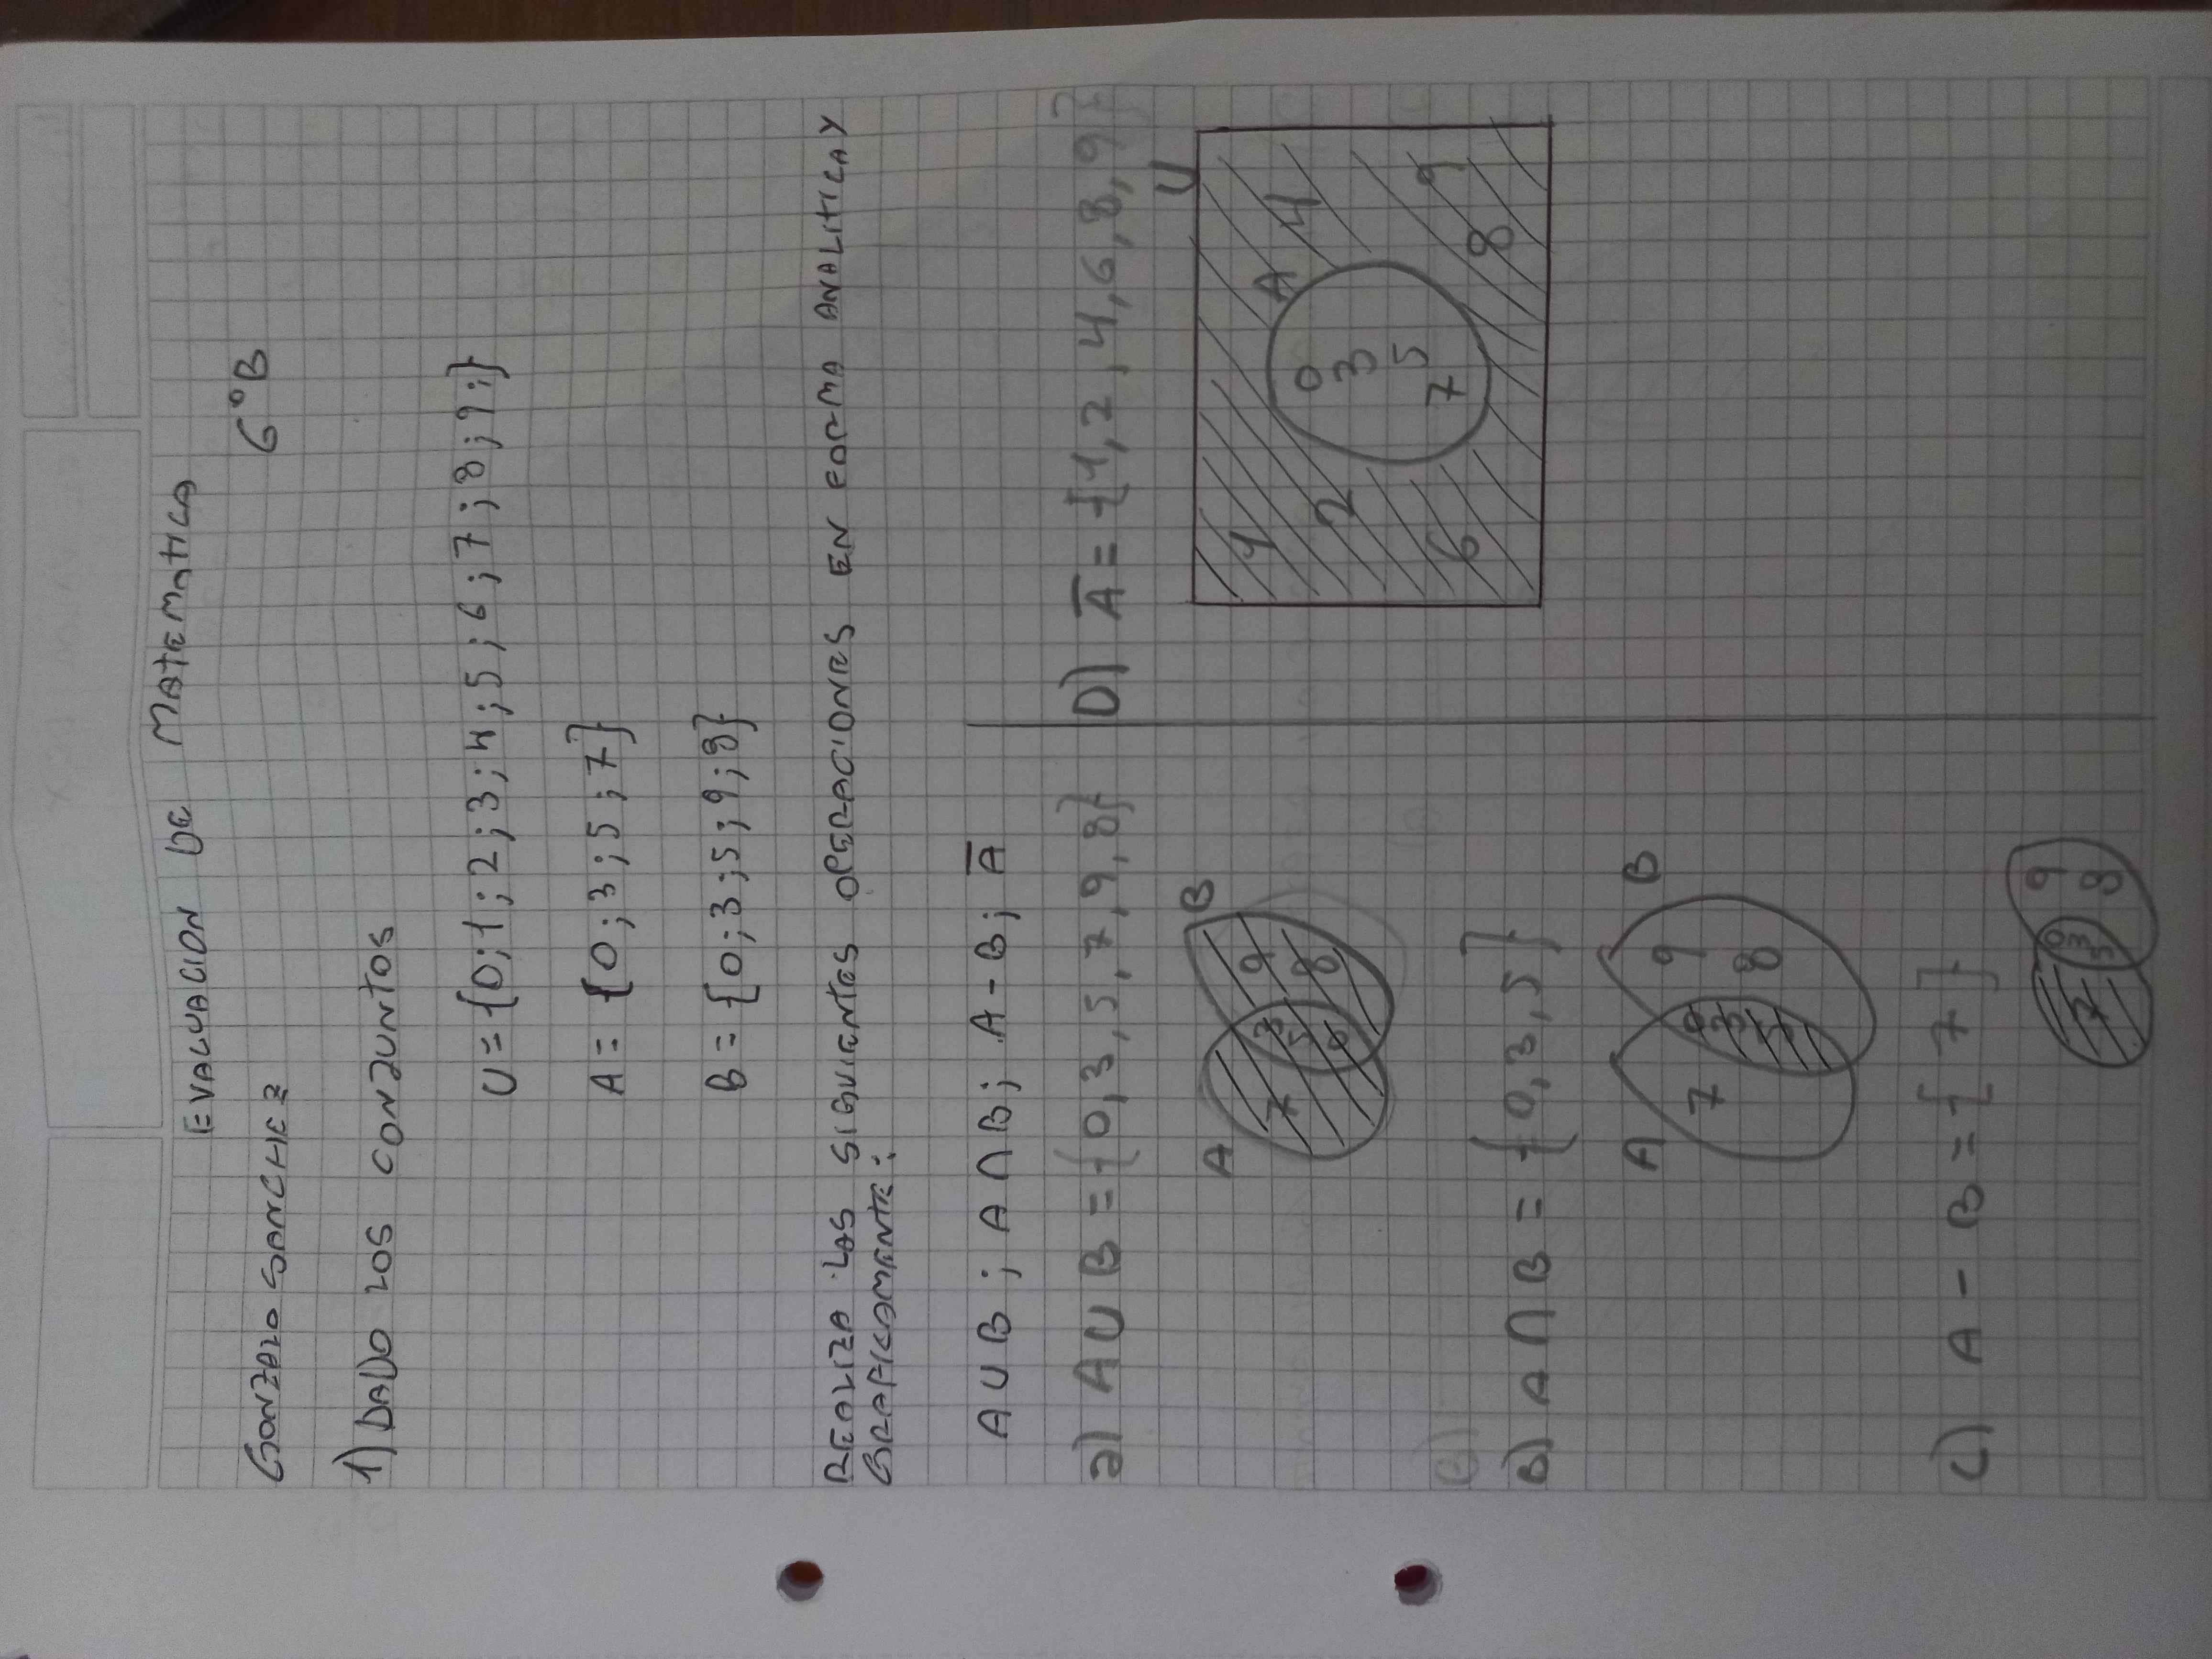 EVALUACION DE MATEMATICA
GONZALO SANCHEZ 6°B
1) DADO LOS CONJUNTOS
U = {0;1;2;3;4;5;6;7;8;9;}
A = {0;3;5;7}
B = {0;3;5;9;8}
REALIZA LAS SIGUIENTES OPERACIONES EN FORMA ANALITICA Y
GRAFICAMENTE:
A U B ; A ∩ B; A - B; A̅
a) A U B = {0,3,5,7,9,8}
A B
7 3 5 0 9 8
B) A ∩ B = {0,3,5}
A B
7 0 3 5 9 8
C) A - B = {7}
7 0 3 5 9 8
D) A̅ = {1,2,4,6,8,9}
U
A
1 2 6
0 3 5 7
4 9 8